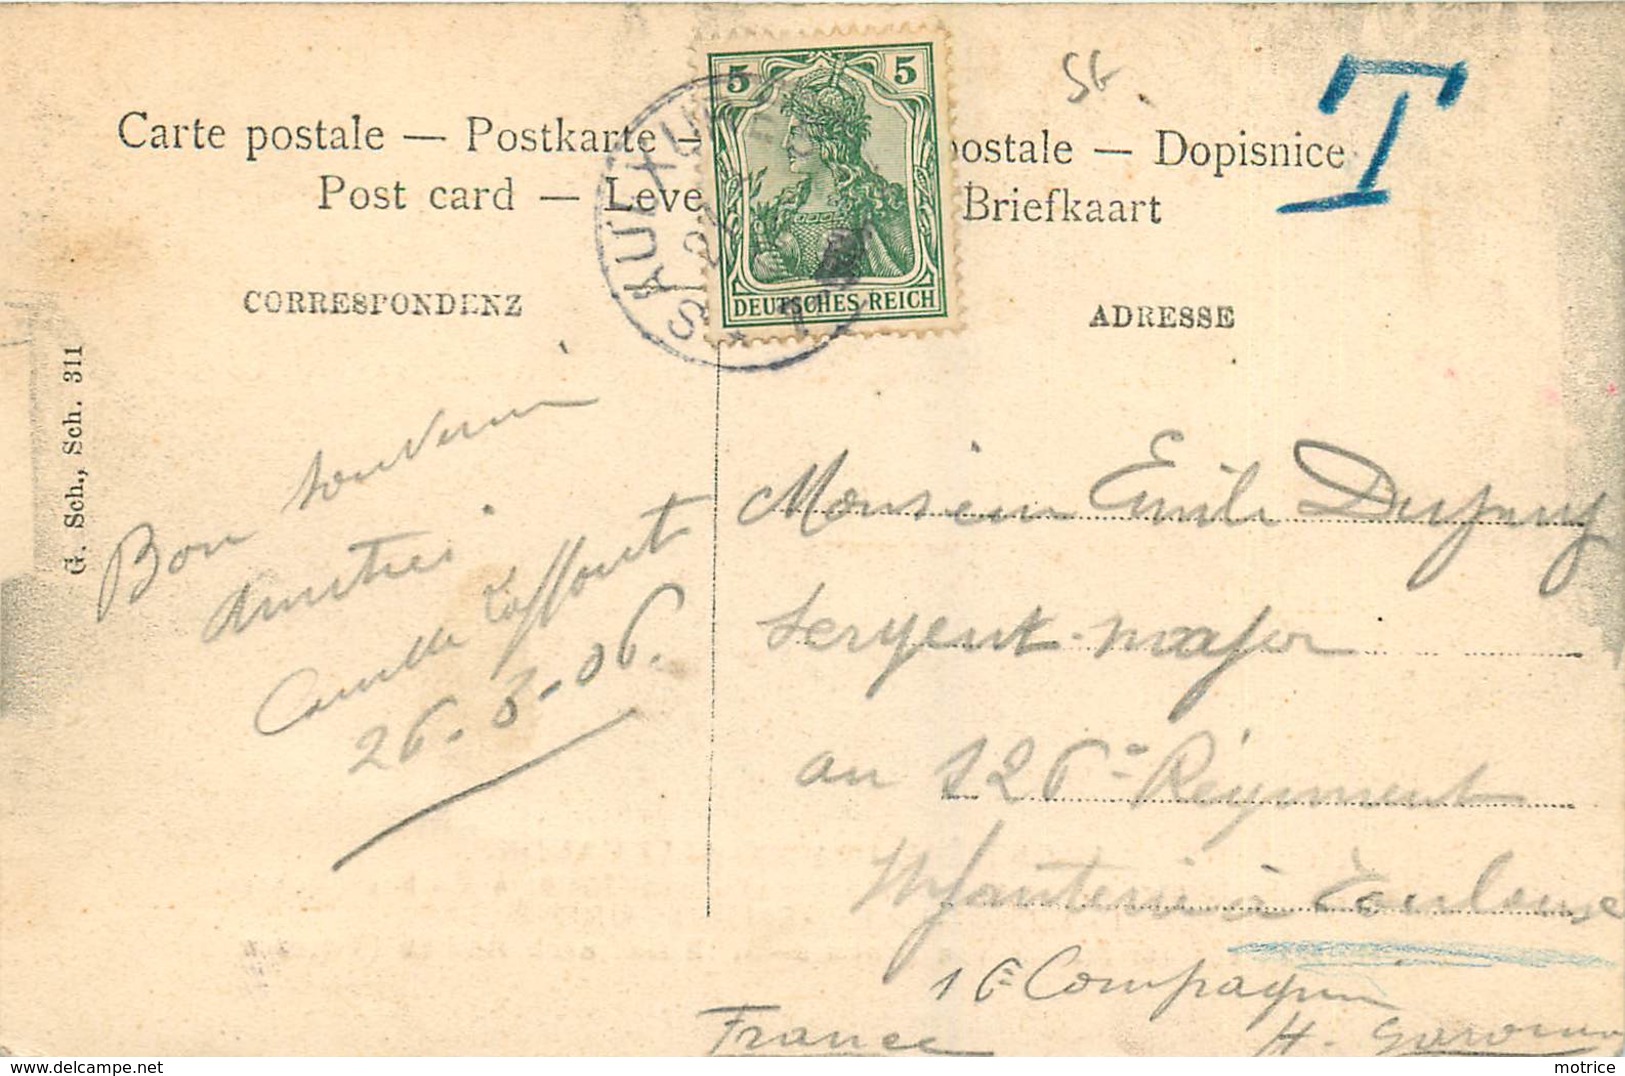 Carte postale — Postkarte — postale — Dopisnice
Post card — Leve Briefkaart
CORRESPONDENZ
ADRESSE
5 5
DEUTSCHES REICH
T
G. Sch., Sch. 311
Bon souvenir
Amitiés
Camille Laffont
26-3-06.
Monsieur Emile Dupuy
Sergent-major
au 126e Régiment
Infanterie à Toulouse
16e Compagnie
France H. Garonne
motrice